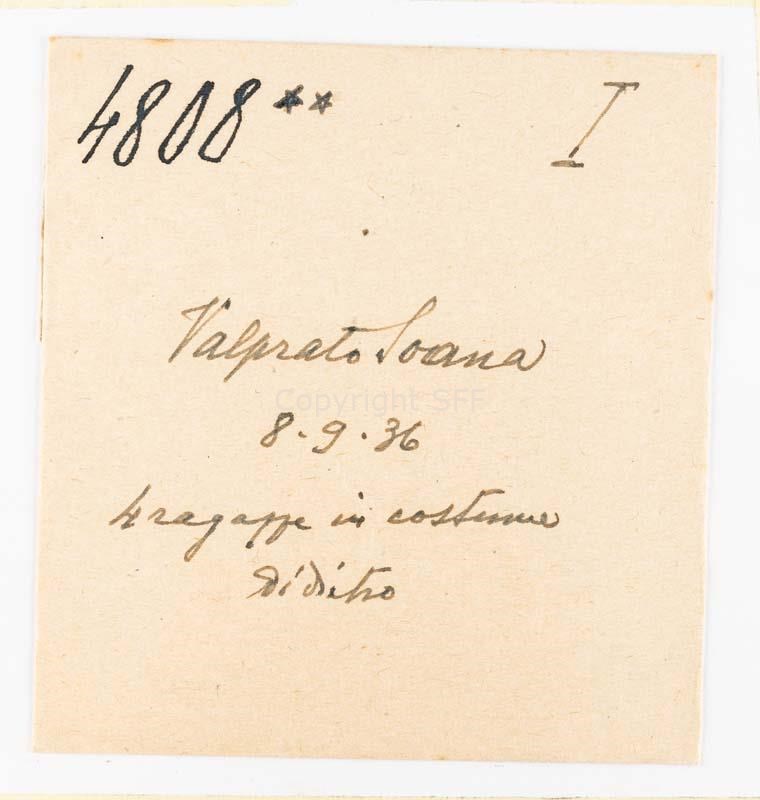 4808 ** I
Valprato Soana
Copyright SFF
8-9-36
4 ragazze in costume
di dietro